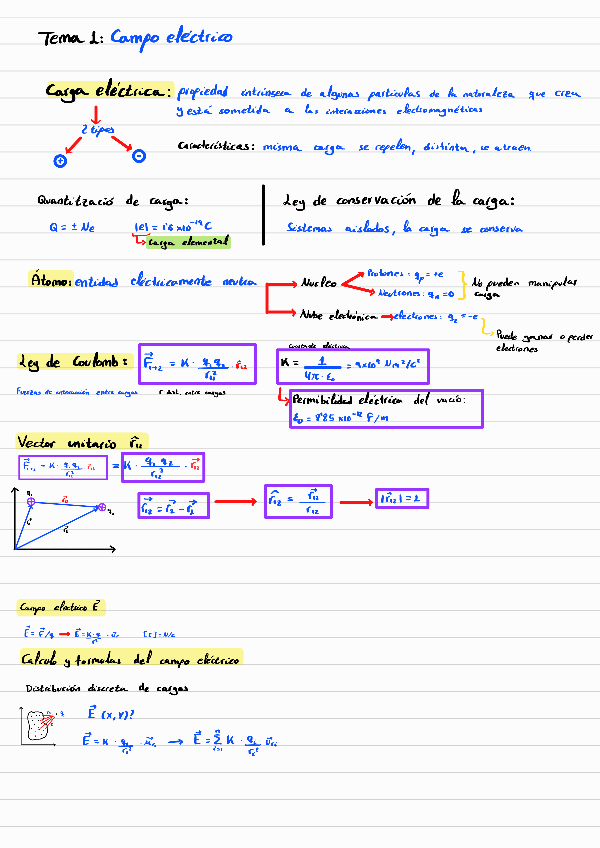 Tema 1: Campo eléctrico
Carga eléctrica: propiedad intrínseca de algunas partículas de la naturaleza que crea
y está sometida a las interacciones electromagnéticas
2 tipos
+ -
Características: misma carga se repelen, distinta, se atraen
Quantització de carga:
Q = ± Ne |e| = 1'6 x10⁻¹⁹ C
Carga elemental
Ley de conservación de la carga:
Sistemas aislados, la carga se conserva
Átomo: entidad eléctricamente neutra
Nucleo
Protones: qp = +e
Neutrones: qn = 0
No pueden manipular
carga
Nube electrónica → electrones: qe = -e
Puede ganar o perder
electrones
Ley de Coulomb: F⃗₁→₂ = K · q₁q₂/r₁₂² · r̂₁₂
Fuerzas de interacción entre cargas r dist. entre cargas
K = 1/(4π·ε₀) = 9x10⁹ Nm²/C²
Permibilidad eléctrica del vacío:
ε₀ = 8'85 x10⁻¹² F/m
Vector unitario r̂₁₂
= K · q₁ q₂/r₁₂³ · r⃗₁₂
r⃗₁₂ = r⃗₂ - r⃗₁ → r̂₁₂ = r⃗₁₂/r₁₂ →
Campo electrico E⃗
E⃗ = F⃗/q → E⃗ = K·q/r² · [E] = N/C
Calculo y formulas del campo eléctrico
Distribución discreta de cargas
E⃗ (x,y)?
E⃗ = K · qi/ri² · u⃗ri → E⃗ = Σⁿi=1 K · qi/ri² u⃗ri